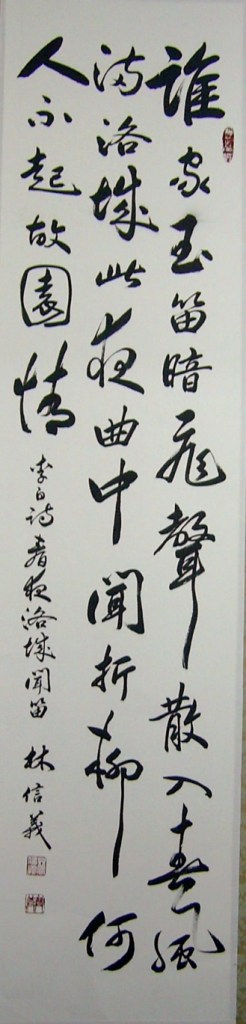 誰家玉笛暗飛聲散入春風
滿洛城此夜曲中聞折柳何
人不起故園情
李白詩春夜洛城聞笛 林信義